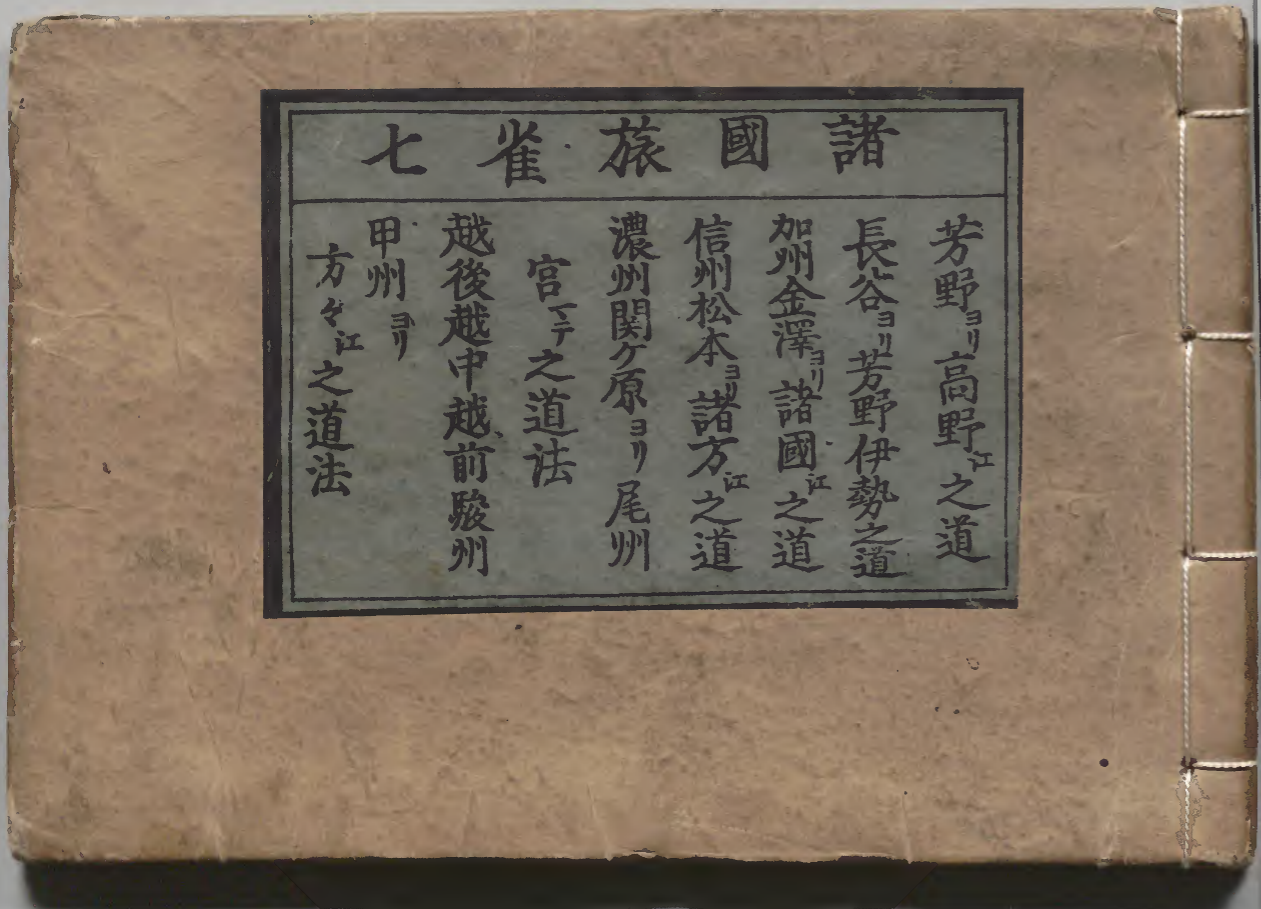 諸國旅雀七
芳野ヨリ高野江之道
長谷ヨリ芳野伊勢之道
加州金澤ヨリ諸國江之道
信州松本ヨリ諸方江之道
濃州関ケ原ヨリ尾州
宮マテ之道法
越後越中越前駿州
甲州ヨリ
方々江之道法